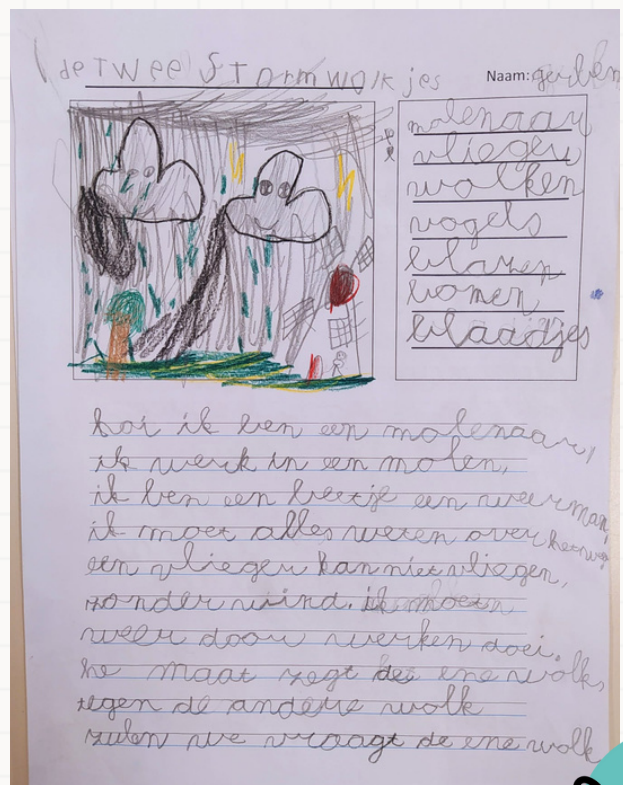 de twee stormwolkjes
Naam: gerben
molenaar
vlieger
wolken
vogels
blazen
bomen
blaadjes
hoi ik ben een molenaar,
ik werk in een molen,
ik ben een beetje een weerman
ik moet alles weten over het weer
een vlieger kan niet vliegen,
zonder wind. ik moet
weer door werken doei.
he maat zegt de ene wolk,
tegen de andere wolk
zulen we vraagt de ene wolk